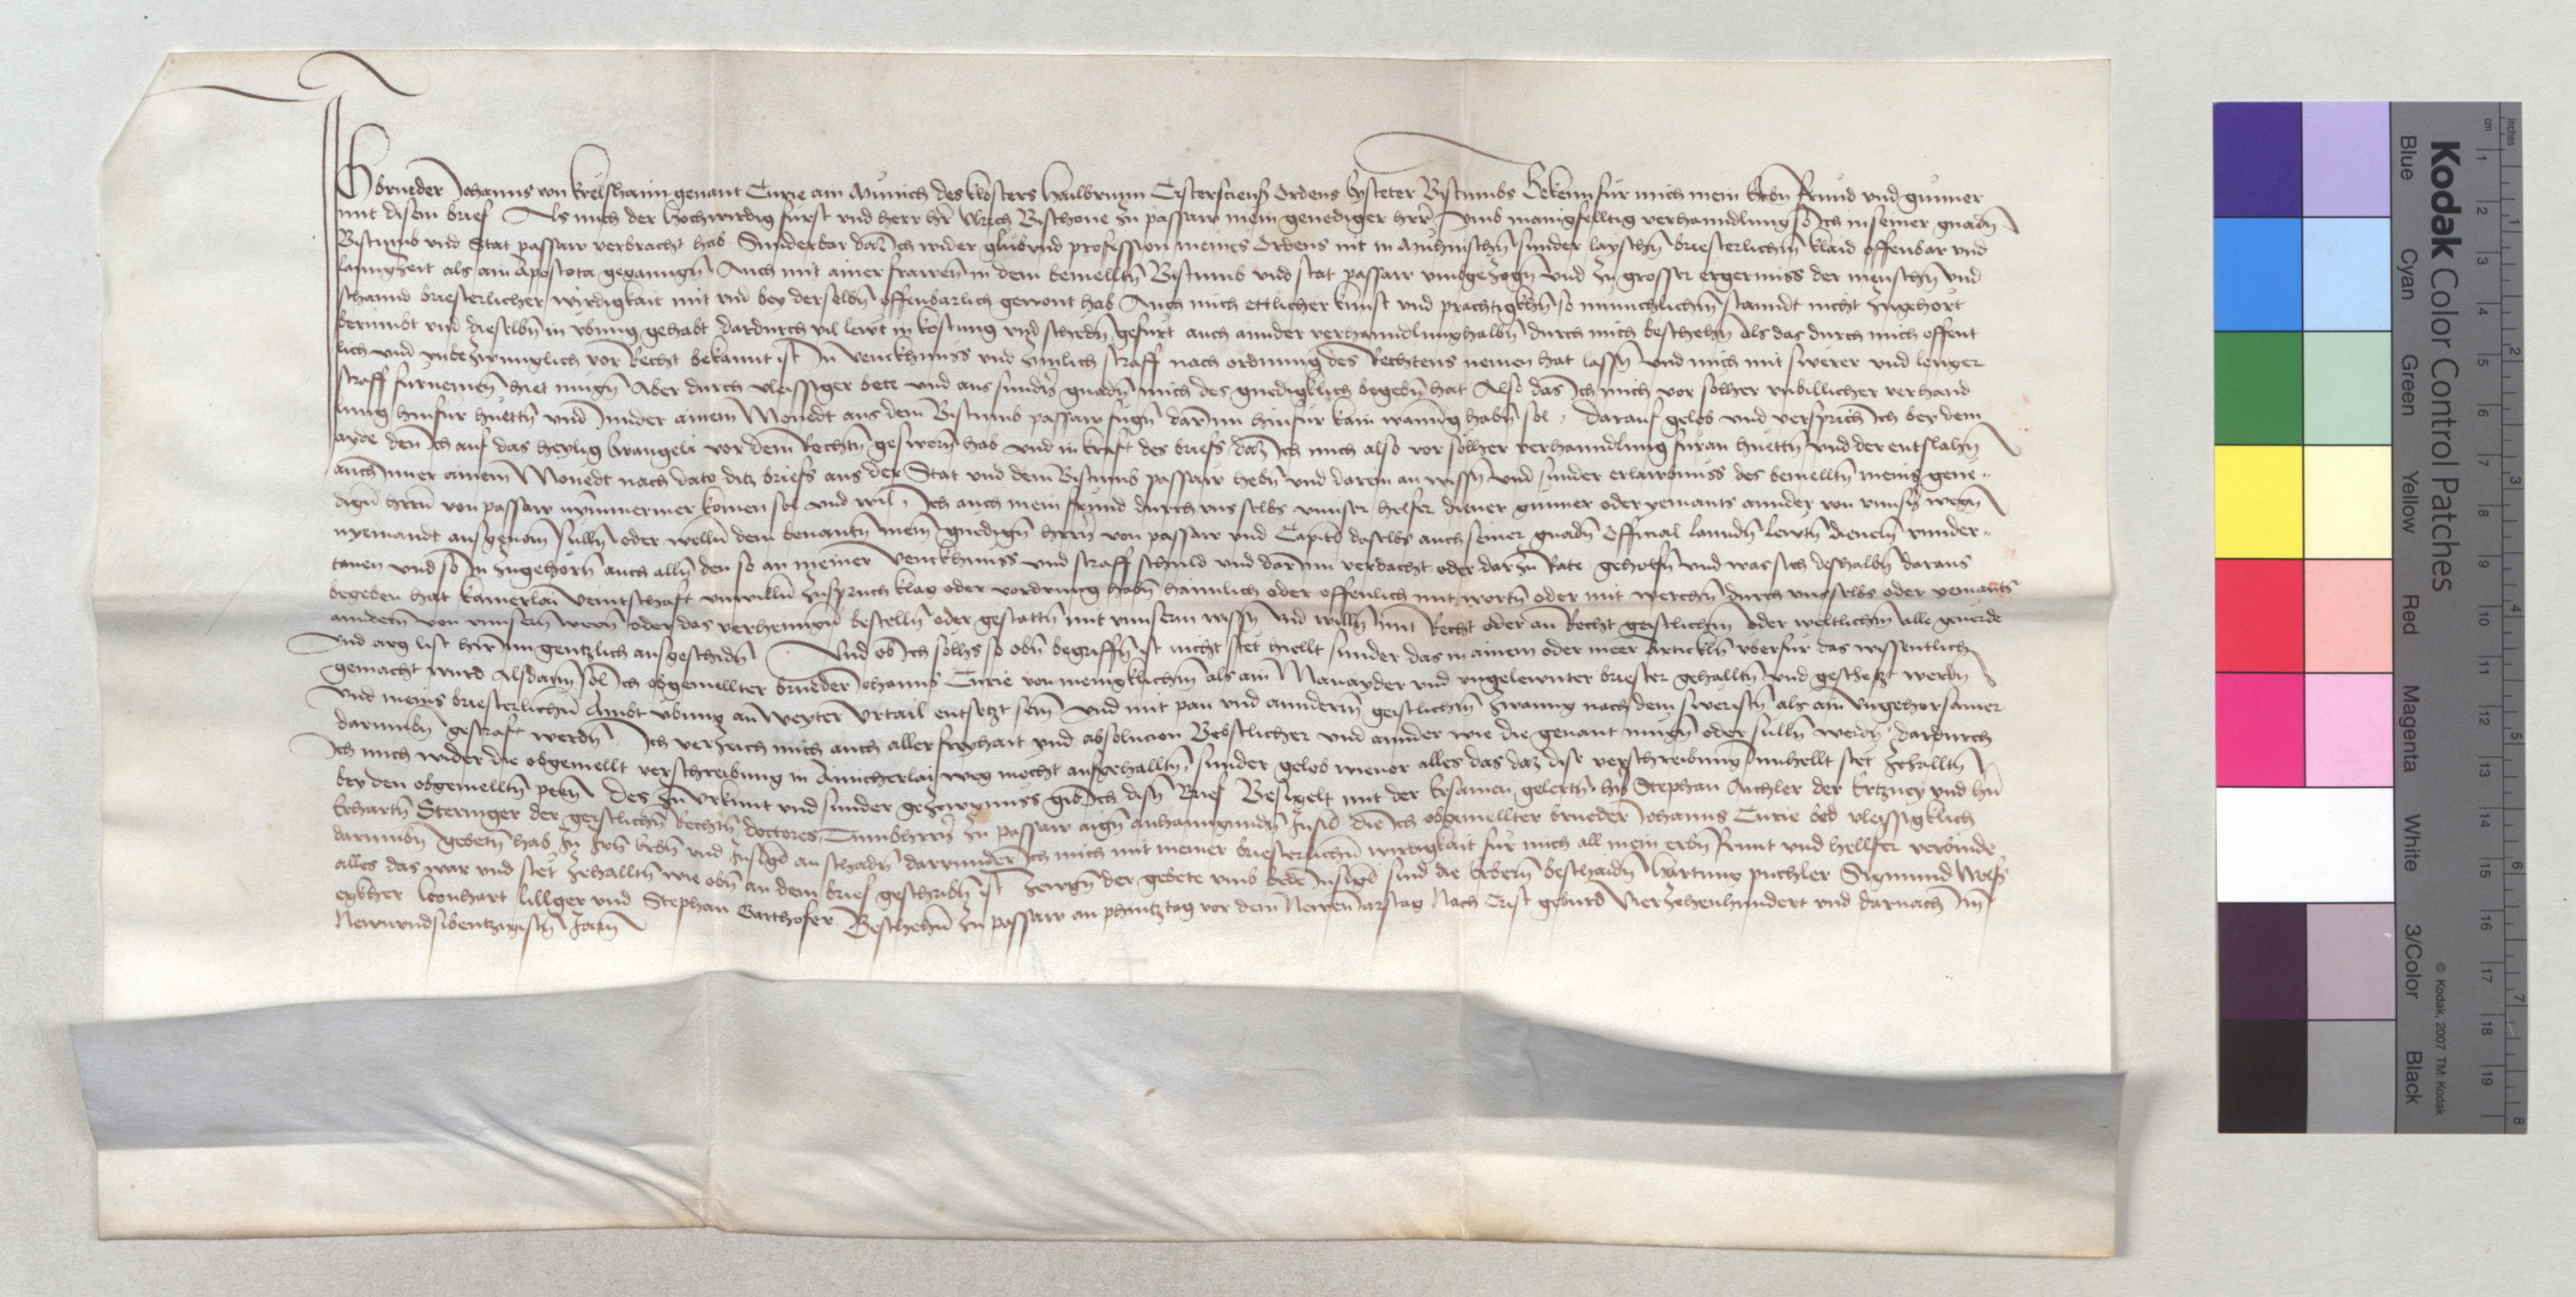 Ich brueder Johanns von krelßhaim genant Curie ain Munich des klosters hailbrunn Cisterscienß Ordens Eysteter Bistumbs Bekenn für mich mein Erbn frund vnd gunner
mit disem brief Als mich der hochwirdig fürst vnd herr hr Vlrich Bischoue zu passaw mein genediger hrr vmb manigfelltig verhanndlung so Ich in seiner gnadn
Bistumb vnd Stat passaw verbracht hab Sunderbar daz Ich wider glub vnd profession meines Ordens nit in Munchischn sunder layschn briesterlichm klaid offenbar vnd
lanngzeit als ain Apostota geganngn Auch mit ainer frawen in dem bemelltn Bistumb vnd stat passaw vmbgezogn vnd zu grosser ergernuss der menschn vnd
schannd briesterlicher wirdigkait mit vnd bey derselbn offenbarlich gewont hab Auch mich ettlicher kunst vnd prachtigkhn so munichlichm stanndt nicht zugehort
berumbt vnd dieselbn in vbung gehabt dardurch vil lewt in kostung vnd schedn gefurt auch annder verhanndlung halbn durch mich beschehn als das durch mich offent
lich vnd vnbezwunglich vor Recht bekannt ist In venckhnuss vnd zimlich straff nach ordnung des Rechtens nemen hat lassn vnd mich mit swerer vnd lenger
straff furnemen hiet mugn Aber durch vleissiger bete vnd aus sundrn gnadn mich des gnedigklich begebn hat Also das Ich mich vor solher vnbillicher verhand
lung hinfur huettn vnd Innder ainem Monedt aus dem Bistumb passaw fugn dar Inn hinfur kain wanung habn sol Darauf gelob vnd versprich Ich bey dem
ayde den Ich auf das heylig Ewangeli vor dem Rechtn gesworn hab vnd in kraft des briefs daz Ich mich also vor solher verhanndlung furan huettn vnd der entslahn
auch Inner ainem Monedt nach dato ditz briefs aus der Stat vnd dem Bistumb passaw hebn vnd darein an wissn vnd sunder erlawbnuss des bemelltn meins gene-
digen hrrn von passaw nymmermer komen sol vnd wil Ich auch mein frund durch vns selbs vnnser helfer diener gunner oder yemants annder von vnnsrn wegn
nyemandt ausgenom sulln oder welln dem benantn mein gnedign hrrn von passaw vnd Capitl daselbs auch seiner gnadn Official lanndn lewtn dienern vnder-
tanen vnd so In zugehorn auch alln den so an meiner venckhnuss vnd straff schuld vnd dar Inn verdacht oder darzu Rate geholfn vnd was sich deshalbn daraus
begeben hat kainerlai veintschaft vnwilln zuspruch klag oder vordrung habn haimlich oder offenlich mit wortn oder mit werchn durch vnsselbs oder yemants
anndern von vnnsern wegn oder das verhenngn bestelln oder gestattn mit vnnserm wissn vnd willn mit Recht oder an Recht geistlichm oder weltlichm alle geuerde
vnd arg list hir Inn gentzlich ausgeschidn Vnd ob Ich solhs so obn begriffn ist nicht stet hiellt sunder das in ainem oder meer Articklen vberfur das wissentlich
gemacht wurd Alsdann sol Ich obgemellter brueder Johanns Curie von meingklichm als ain Manayder vnd vngelewnter briester gehalltn vnd geschetzt werdn
vnd meins briesterlichn Ambt vbung an weyter vrtail entsetzt sein vnd mit pan vnd annderm geistlichm zwanng nach dem swerstn als ain vngehorsamer
darumbn gestraft werdn Ich verzeich mich auch aller freyhait vnd absolucion Bebstlicher vnd annder wie die genant mugn oder sulln werdn dardurch
Ich mich wider die obgemellt verschreibung in Ainicherlai weg mocht aufgehalltn sunder gelob wie vor alles das daz dise verschreibung Innhellt stet zehalltn
bey den obgemelltn penn Des zu vrkunt vnd sunder gezewgnuss gib Ich disn Brief Besigelt mit der Ersamen gelertn hrn Stephan Aichler der Ertzney vnd hrn
Erhartn Steringer der geistlichn Rechtn doctores Tumbhrrn zu passaw aign anhanngundn Insigl die Ich obgemellter brueder Johanns Curie bed vleissigklich
darumbn gebetn hab In Irn Erbn vnd Insigl an schadn darunnder Ich mich mit meiner briesterlichn wirdigkait für mich all mein erbn frunt vnd hellfer verbinde
alles das war vnd stet zehalltn wie obn an dem brief geschribn ist Zewgn der gebete vmb bede Insigl sind die Erbern beschaidn hartung puchler Sigmund Wolfs
egkher leonhart sillger vnd Stephan Garthofer Beschehn zu passaw an phintztag vor dem Newen Jarstag Nach Crist geburd Vierzehenhundert vnd darnach Im
Newnvndsibentzigistn Jarn
Kodak Color Control Patches
Blue Cyan Green Yellow Red Magenta White 3/Color Black
© Kodak, 2007 TM: Kodak
cm 1 2 3 4 5 6 7 8 9 10 11 12 13 14 15 16 17 18 19
inches 1 2 3 4 5 6 7 8